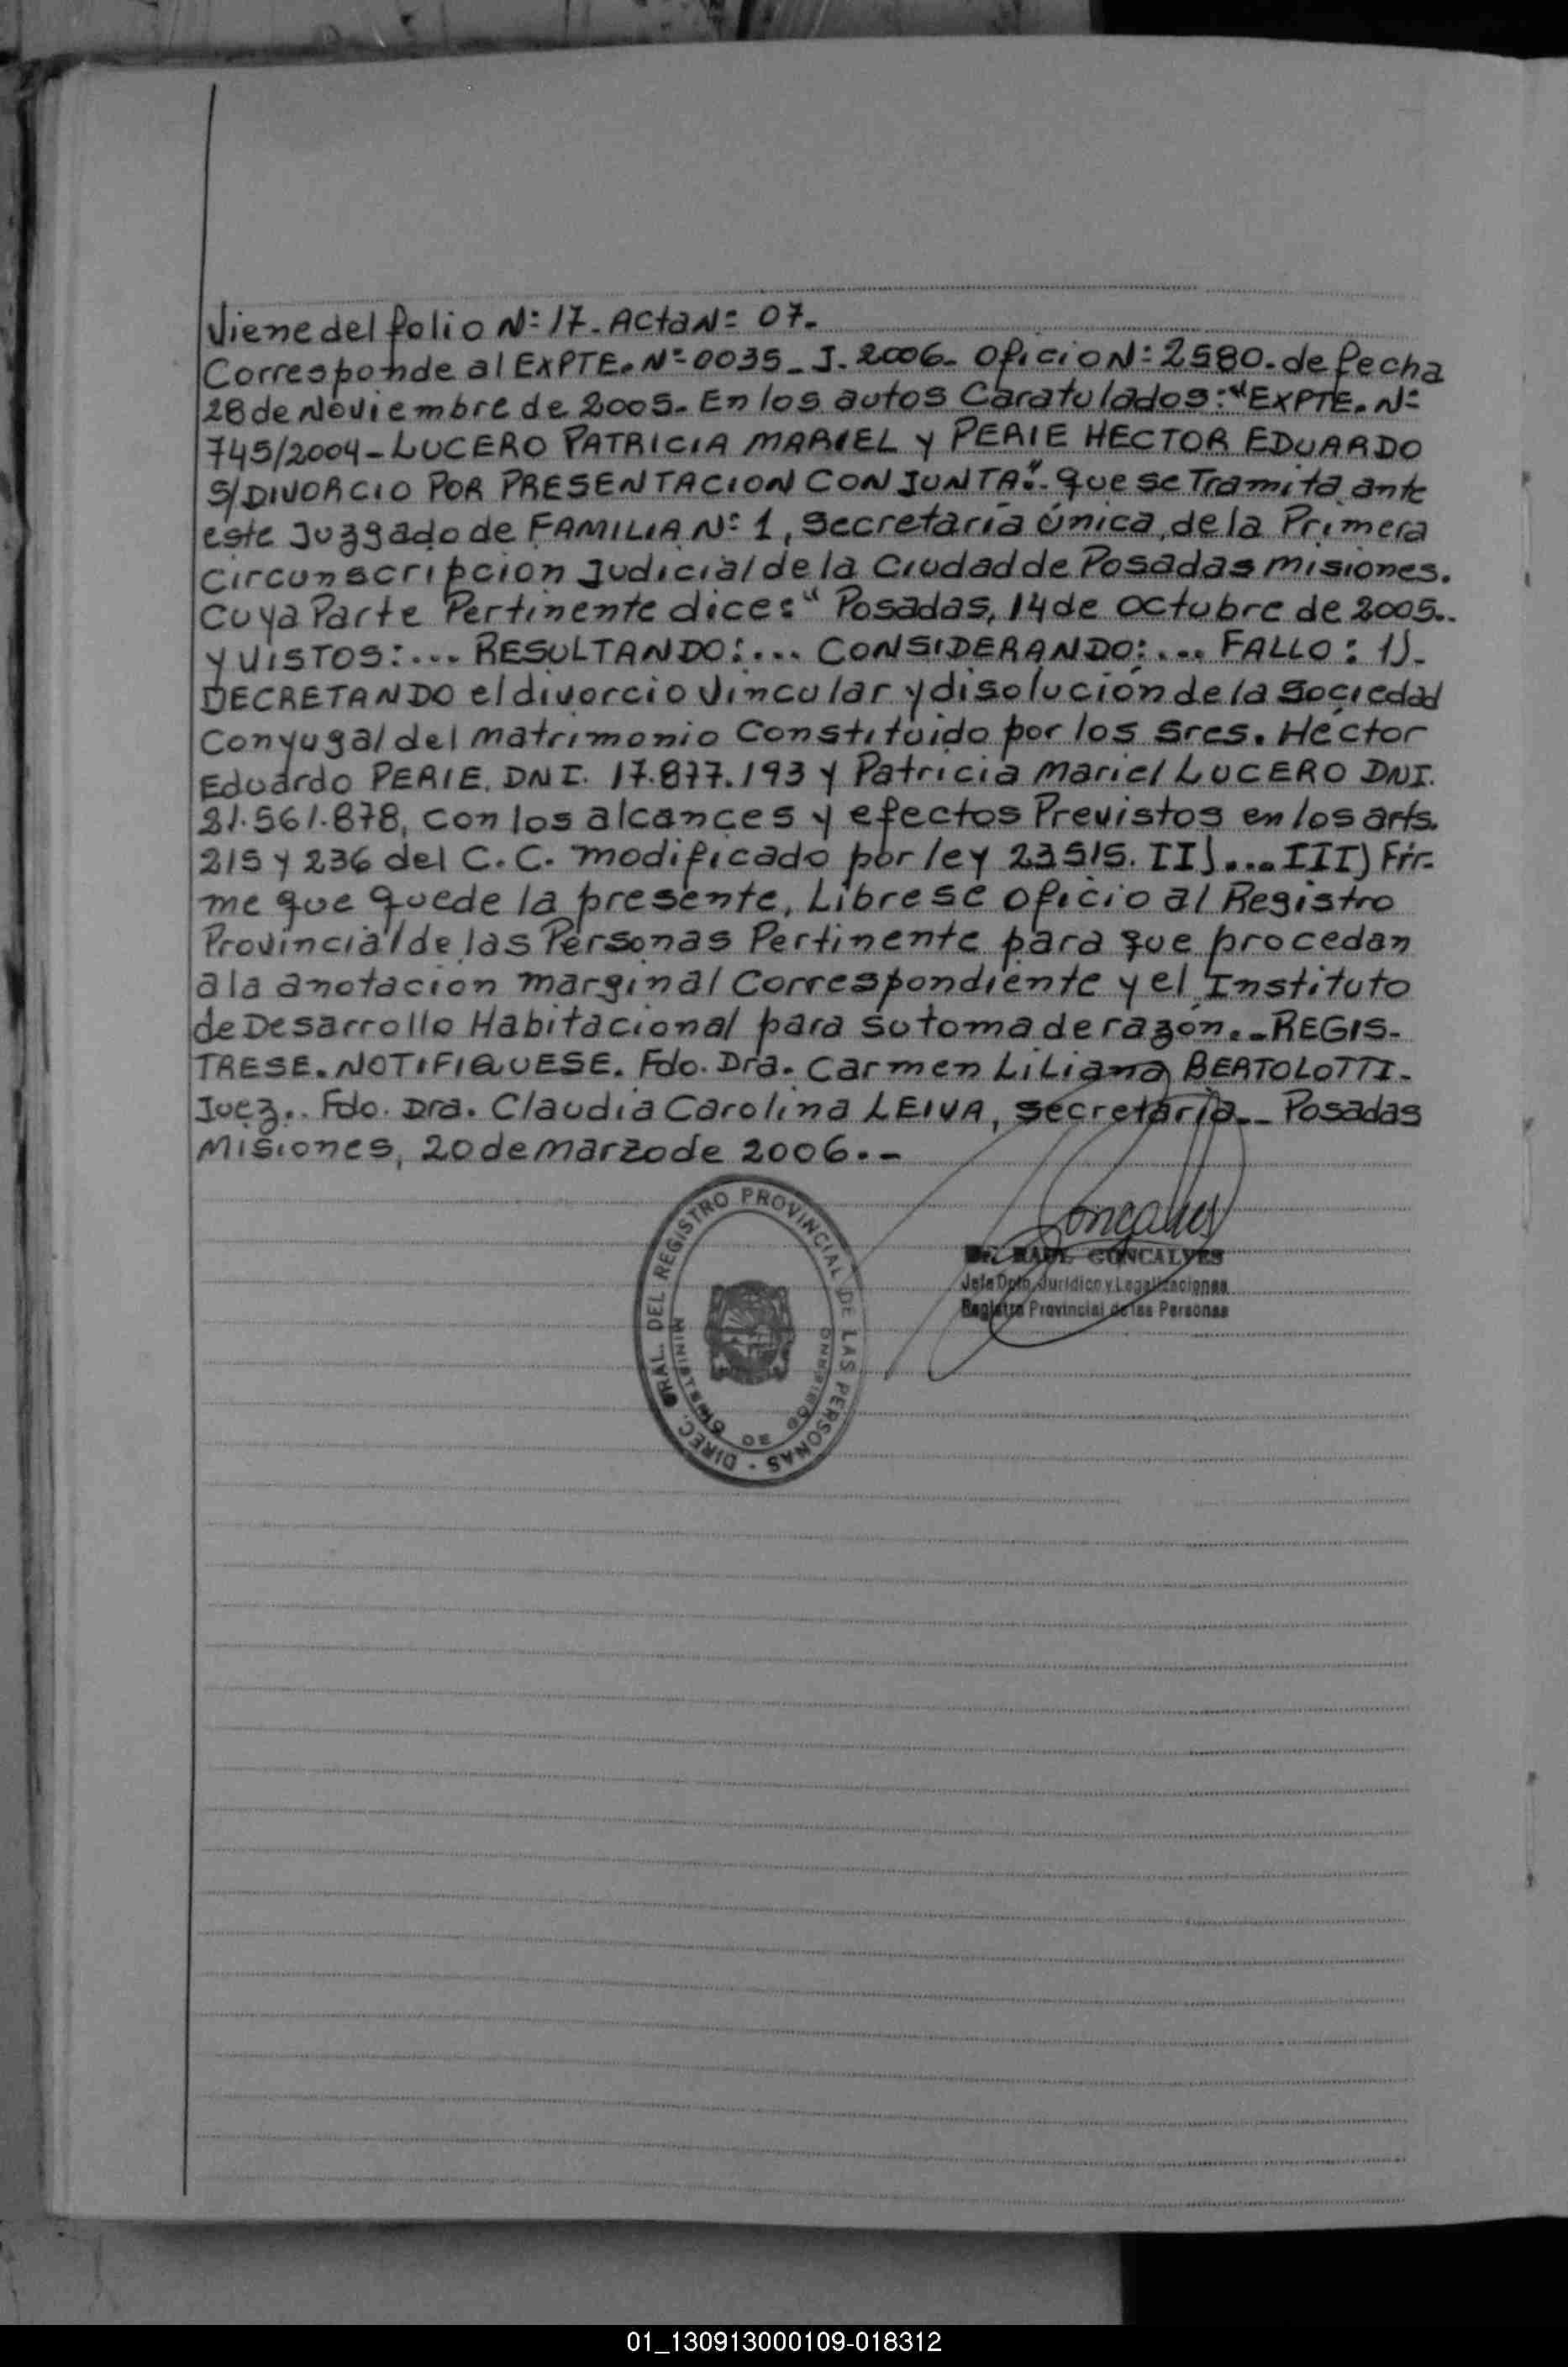 Viene del folio Nº 17. Acta Nº 07.
Corresponde al EXPTE. Nº 0035 - J. 2006. Oficio Nº 2580. de fecha
28 de Noviembre de 2005. En los autos Caratulados: "EXPTE. Nº
745/2004 - LUCERO PATRICIA MARIEL y PERIE HECTOR EDUARDO
S/DIVORCIO POR PRESENTACION CONJUNTA". que se Tramita ante
este Juzgado de FAMILIA Nº 1, Secretaría única, de la Primera
Circunscripción Judicial de la Ciudad de Posadas Misiones.
Cuya Parte Pertinente dice: "Posadas, 14 de Octubre de 2005..
y VISTOS:... RESULTANDO:... CONSIDERANDO:... FALLO: 1).
DECRETANDO el divorcio Vincular y disolución de la Sociedad
Conyugal del matrimonio Constituido por los Sres. Héctor
Eduardo PERIE, DNI. 17.877.193 y Patricia Mariel LUCERO DNI.
21.561.878, con los alcances y efectos Previstos en los arts.
215 y 236 del C.C. modificado por ley 23515. II)... III) Fir-
me que quede la presente, Librese oficio al Registro
Provincial de las Personas Pertinente para que procedan
a la anotación marginal Correspondiente y el Instituto
de Desarrollo Habitacional para su toma de razón.- REGIS-
TRESE. NOTIFIQUESE. Fdo. Dra. Carmen Liliana BERTOLOTTI-
Juez.. Fdo. Dra. Claudia Carolina LEIVA, secretaria.- Posadas
Misiones, 20 de marzo de 2006.-
Goncalves
Dr. RAUL GONCALVES
Jefe Dpto. Jurídico y Legalizaciones
Registro Provincial de las Personas
DIREC. GRAL. DEL REGISTRO PROVINCIAL DE LAS PERSONAS -
MINISTERIO DE GOBIERNO
01_130913000109-018312